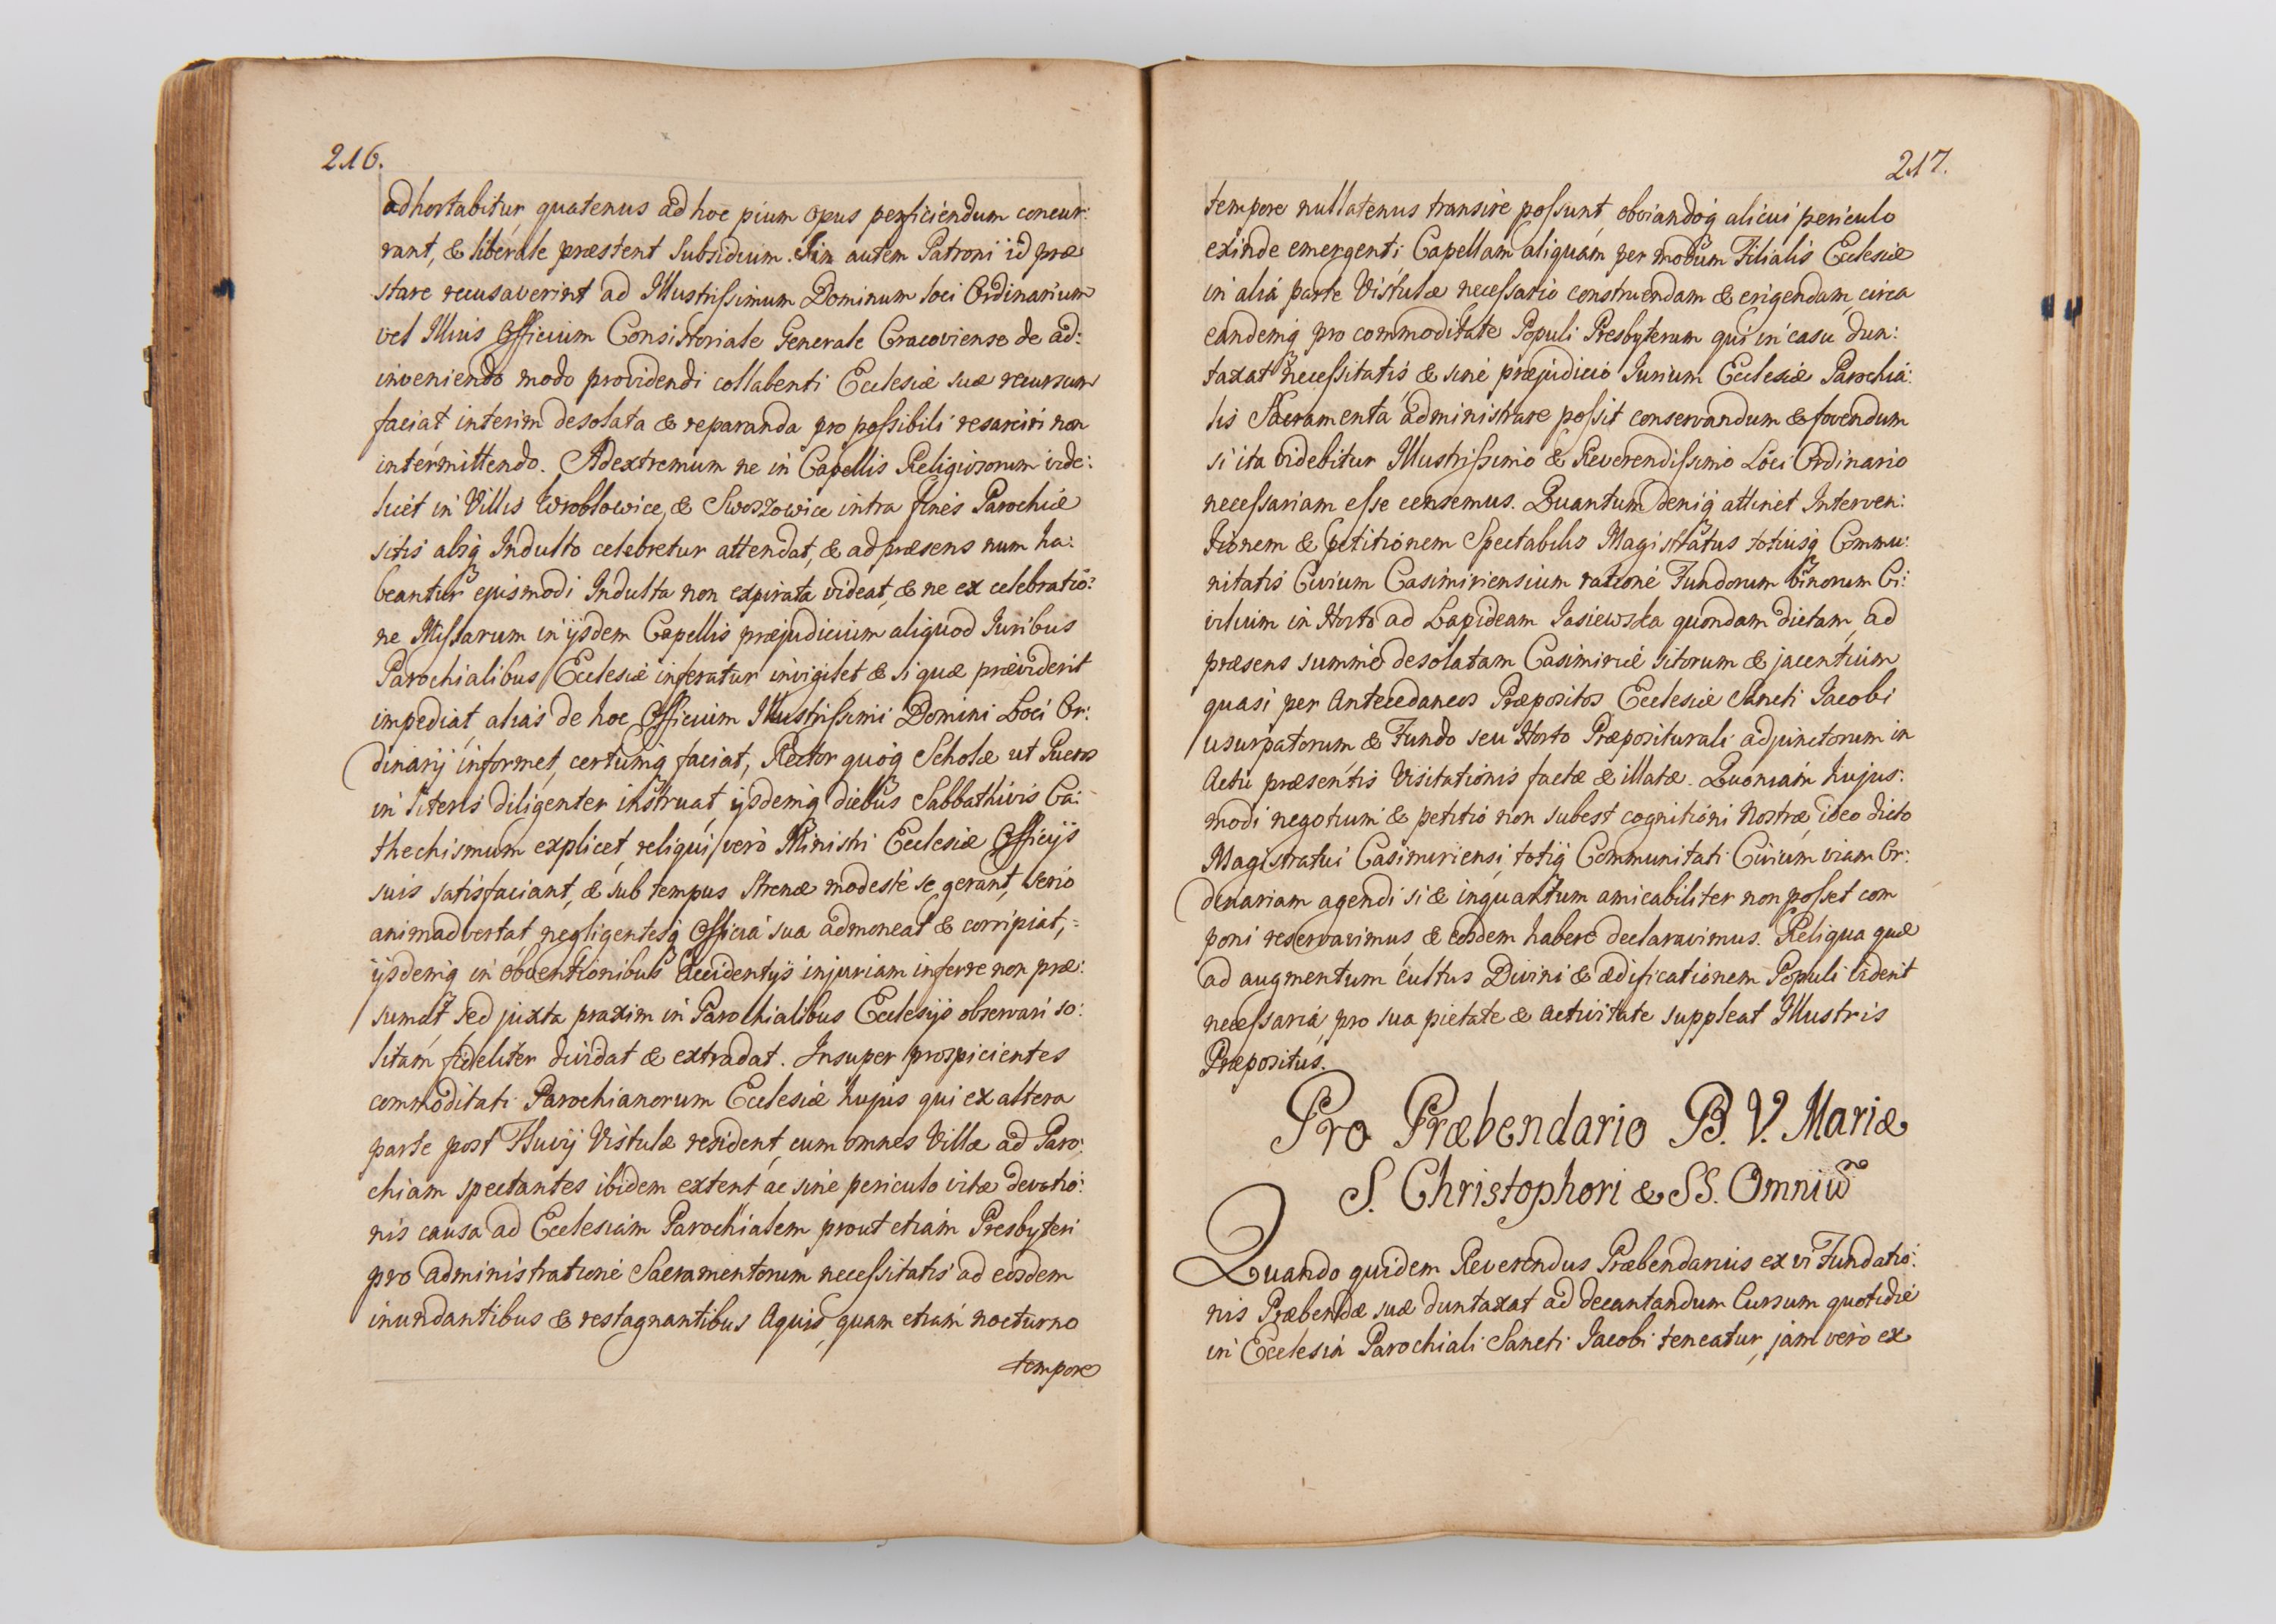 216.
adhortabitur quatenus ad hoc pium opus perficiendum concur:
rant, & liberale præstent subsidium. Sin autem Patroni id præ
stare recusaverint ad Illustrissimum Dominum loci Ordinarium
vel Illius Officium Consistoriale Generale Cracoviense de ad:
inveniendo modo providendi collabenti Ecclesiæ suæ recursum
faciat interim desolata & reparanda pro possibili resarciri non
intermittendo. Ad extremum ne in Capellis Religiosorum vide:
licet in Villis Wroblowice, & Swoszowice intra fines Parochiæ
sitis absq Indulto celebretur attendat, & ad præsens num ha:
beantur ejusmodi Indulta non expirata videat, & ne ex celebratio:
ne Missarum in ijsdem Capellis præjudicium aliquod Iuribus
Parochialibus Ecclesiæ inferatur invigilet & si quæ præviderit
impediat, alias de hoc Officium Illustrissimi Domini Loci Or:
dinarij informet, certumq faciat, Rector quoq Scholæ ut Pueros
in literis diligenter instruat, ijsdemq diebus Sabbathivis Ca:
thechismum explicet, reliqui vero Ministri Ecclesiæ Officijs
suis satisfaciant, & sub tempus Strenæ modeste se gerant, serio
animadvertat, negligentesq Officia sua admoneat & corripiat,=
ijsdemq in obventionibus Accidentijs injuriam inferre non præ:
sumat sed juxta praxim in Parochialibus Ecclesijs observari so:
litam fideliter dividat & extradat. Insuper prospicientes
commoditati Parochianorum Ecclesiæ hujus qui ex altera
parte post Fluvij Vistulæ resident, cum omnes Villæ ad Paro:
chiam spectantes ibidem extent ac sine periculo vitæ devotio:
nis causa ad Ecclesiam Parochialem prout etiam Presbyteri
pro administratione Sacramentorum necessitatis ad eosdem
inundantibus & restagnantibus Aquis, quam etiam nocturno
tempore
217.
tempore nullatenus transire possunt, obviandoq alicui periculo
exinde emergenti Capellam aliquam per modum Filialis Ecclesiæ
in alia parte Vistulæ necessario construendam & erigendam, circa
eandemq pro commoditate Populi Presbyterum qui in casu dun:
taxat necessitatis & sine præjudicio Iurium Ecclesiæ Parochia:
lis Sacramenta administrare possit conservandum & fovendum
si ita videbitur Illustrissimo & Reverendissimo Loci Ordinario
necessariam esse censemus. Quantum deniq attinet Interven:
tionem & petitionem Spectabilis Magistratus totiusq Commu:
nitatis Civium Casimiriensium ratione Fundorum binorum Ci:
vilium in Horto ad Lapideam Jasiewska quondam dictam, ad
præsens summe desolatam Casimiriæ sitorum & jacentium
quasi per Antecedaneos Præpositos Ecclesiæ Sancti Iacobi
usurpatorum & Fundo seu Horto Præpositurali adjunctorum in
Actu præsentis Visitationis factæ & illatæ. Quoniam hujus:
modi negotium & petitio non subest cognitioni Nostræ, ideo dicto
Magistratui Casimiriensi, totiq Communitati Civium viam Or:
dinariam agendi si & inquantum amicabiliter non posset com
poni reservavimus & eosdem habere declaravimus. Reliqua quæ
ad augmentum cultus Divini & ædificationem Populi viderit
necessaria, pro sua pietate & activitate suppleat Illustris
Præpositus.
Pro Præbendario B. V. Mariæ
S. Christophori & SS. Omniū
Quando quidem Reverendus Præbendarius ex vi Fundatio:
nis Præbendæ suæ duntaxat ad decantandum Cursum quotidie
in Ecclesia Parochiali Sancti Iacobi teneatur, jam vero ex